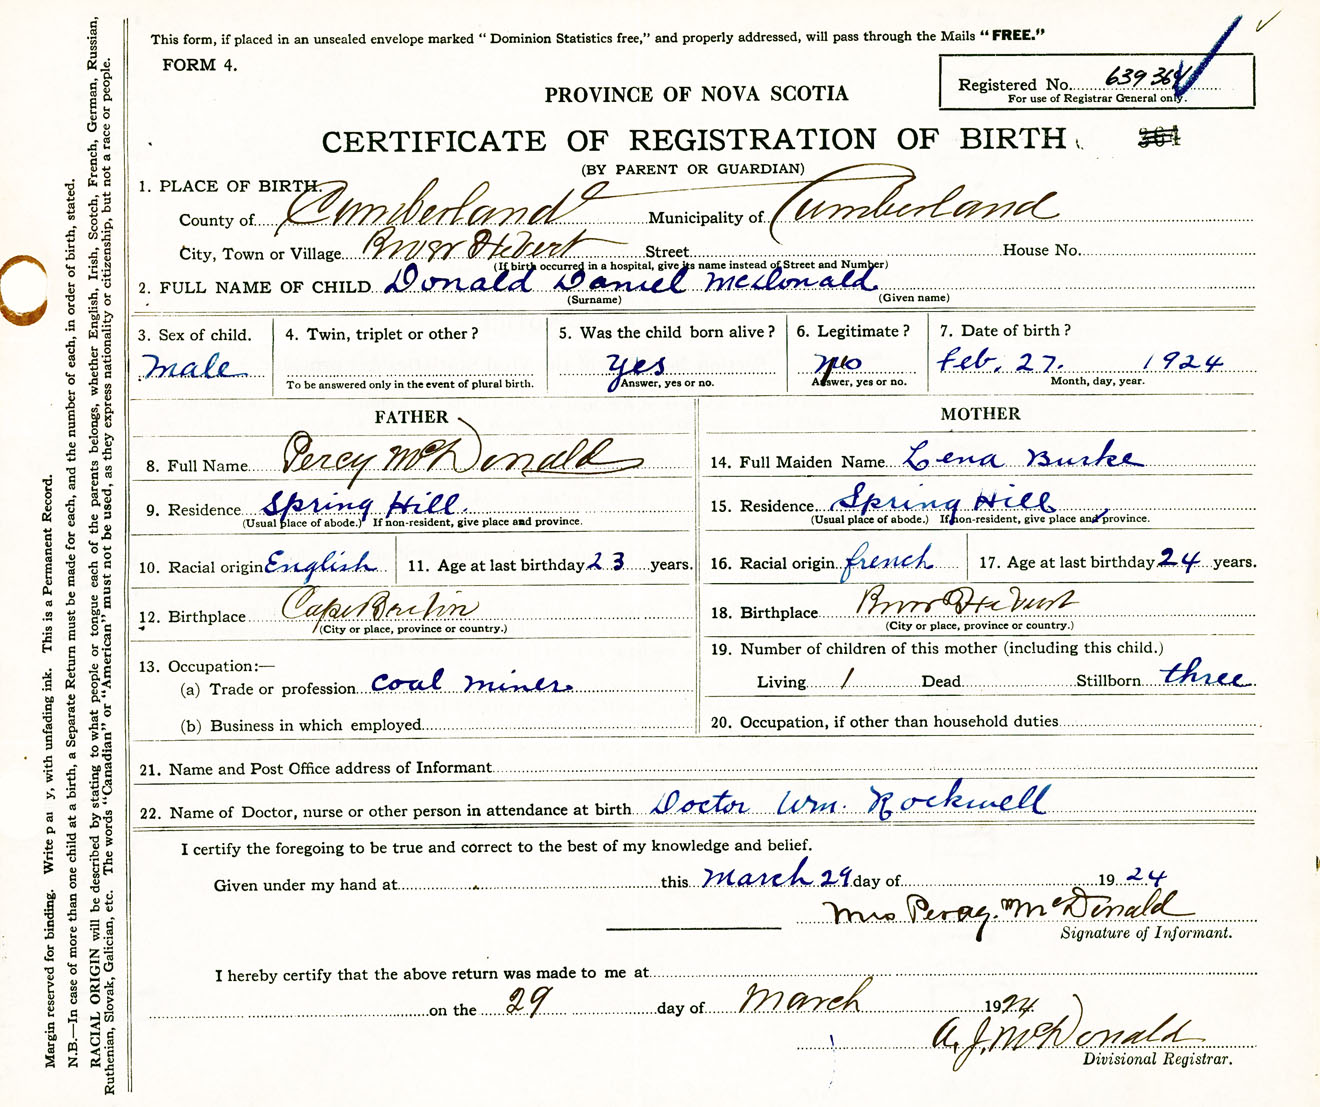 This form, if placed in an unsealed envelope marked "Dominion Statistics free," and properly addressed, will pass through the Mails "FREE."
FORM 4.
Registered No. 639364
For use of Registrar General only.
PROVINCE OF NOVA SCOTIA
CERTIFICATE OF REGISTRATION OF BIRTH
(BY PARENT OR GUARDIAN)
1. PLACE OF BIRTH.
County of Cumberland Municipality of Cumberland
City, Town or Village River Hebert Street House No.
(If birth occurred in a hospital, give its name instead of Street and Number)
2. FULL NAME OF CHILD Donald Daniel McDonald
(Surname) (Given name)
3. Sex of child. 4. Twin, triplet or other? 5. Was the child born alive? 6. Legitimate? 7. Date of birth?
male yes no Feb. 27. 1924
To be answered only in the event of plural birth. Answer, yes or no. Answer, yes or no. Month, day, year.
FATHER
8. Full Name Percy McDonald
9. Residence Spring Hill.
(Usual place of abode.) If non-resident, give place and province.
10. Racial origin English 11. Age at last birthday 23 years.
12. Birthplace Cape Breton
(City or place, province or country.)
13. Occupation:—
(a) Trade or profession coal miner
(b) Business in which employed
MOTHER
14. Full Maiden Name Lena Burke
15. Residence Spring Hill
(Usual place of abode.) If non-resident, give place and province.
16. Racial origin french 17. Age at last birthday 24 years.
18. Birthplace River Hebert
(City or place, province or country.)
19. Number of children of this mother (including this child.)
Living 1 Dead Stillborn three
20. Occupation, if other than household duties
21. Name and Post Office address of Informant
22. Name of Doctor, nurse or other person in attendance at birth Doctor Wm. Rockwell
I certify the foregoing to be true and correct to the best of my knowledge and belief.
Given under my hand at this March 29 day of 19 24
Mrs Percy McDonald
Signature of Informant.
I hereby certify that the above return was made to me at
on the 29 day of March 1924
A. J. McDonald
Divisional Registrar.
Margin reserved for binding. Write p ai y, with unfading ink. This is a Permanent Record.
N.B.—In case of more than one child at a birth, a Separate Return must be made for each, and the number of each, in order of birth, stated.
RACIAL ORIGIN will be described by stating to what people or tongue each of the parents belongs, whether English, Irish, Scotch, French, German, Russian,
Ruthenian, Slovak, Galician, etc. The words "Canadian" or "American" must not be used, as they express nationality or citizenship, but not a race or people.